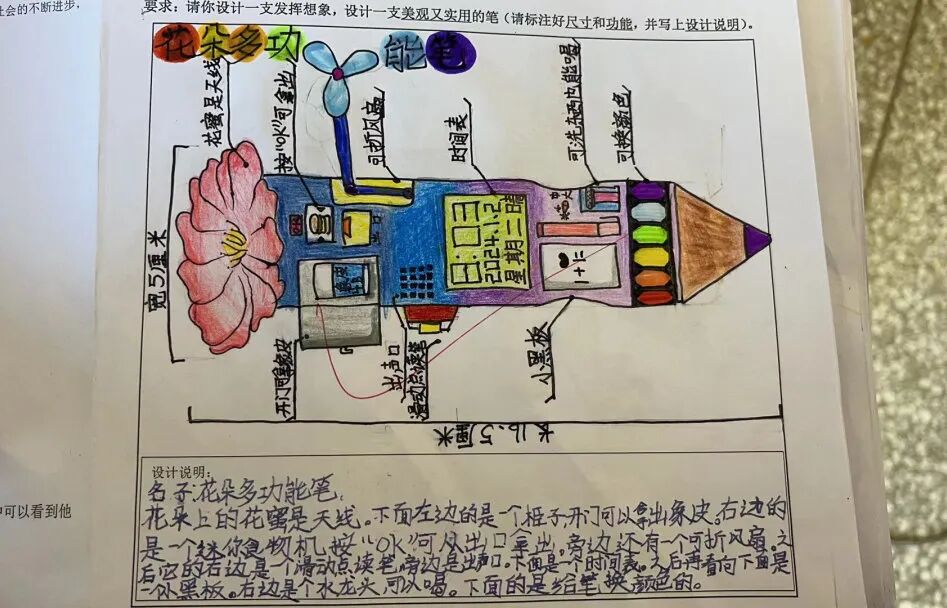 社会的不断进步,
要求：请你设计一支发挥想象，设计一支美观又实用的笔（请标注好尺寸和功能，并写上设计说明）。
花朵多功能笔
花蜜是天线
按"OK"可拿出
可折风扇
时间表
可洗东西也能喝
可换颜色
宽5厘米
2024.1.2
星期二晴
1+1=
开门可拿橡皮
出声口
滑动点读笔
小黑板
长16.5厘米
中可以看到他
设计说明：
名子：花朵多功能笔。
花朵上的花蜜是天线。下面左边的是一个柜子开门可以拿出橡皮。右边的
是一个迷你食物机，按"OK"可从出口拿出，旁边还有一个可折风扇。之
后它的右边是一个滑动点读笔，旁边是出声口。下面是一个时间表。之后再看向下面是
一个小黑板。右边是个水龙头可以喝。下面的是给笔换颜色的。